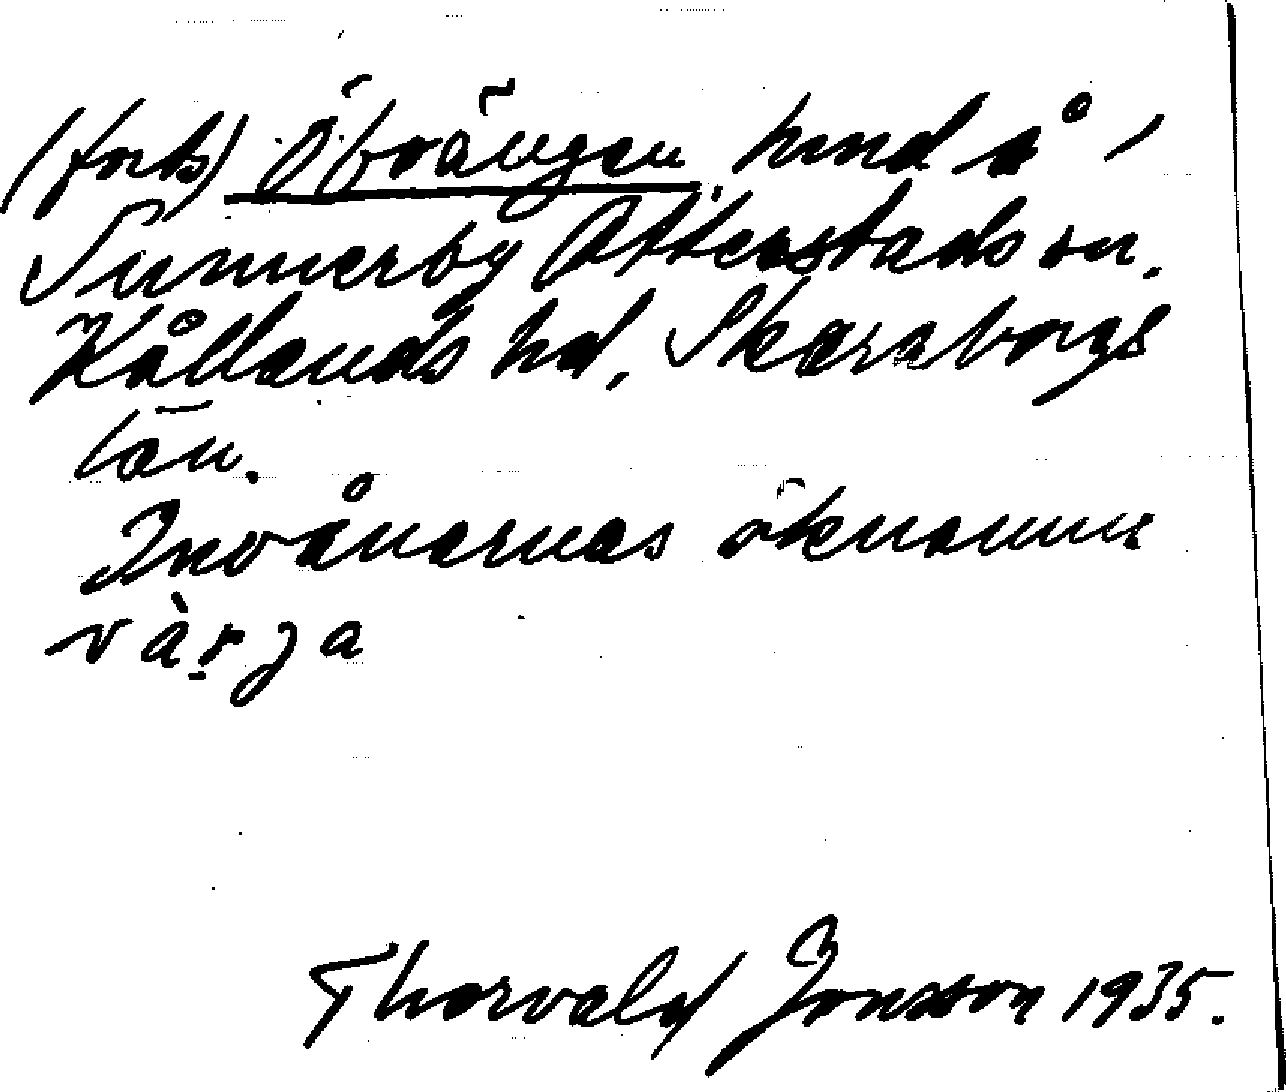 (forts) Öfvängen hmd å i
Sunnerby Otterstads sn.
Kållands hd, Skaraborgs
län.
Invånarnas öknamn
värga
Thorvald Jonsson 1935.